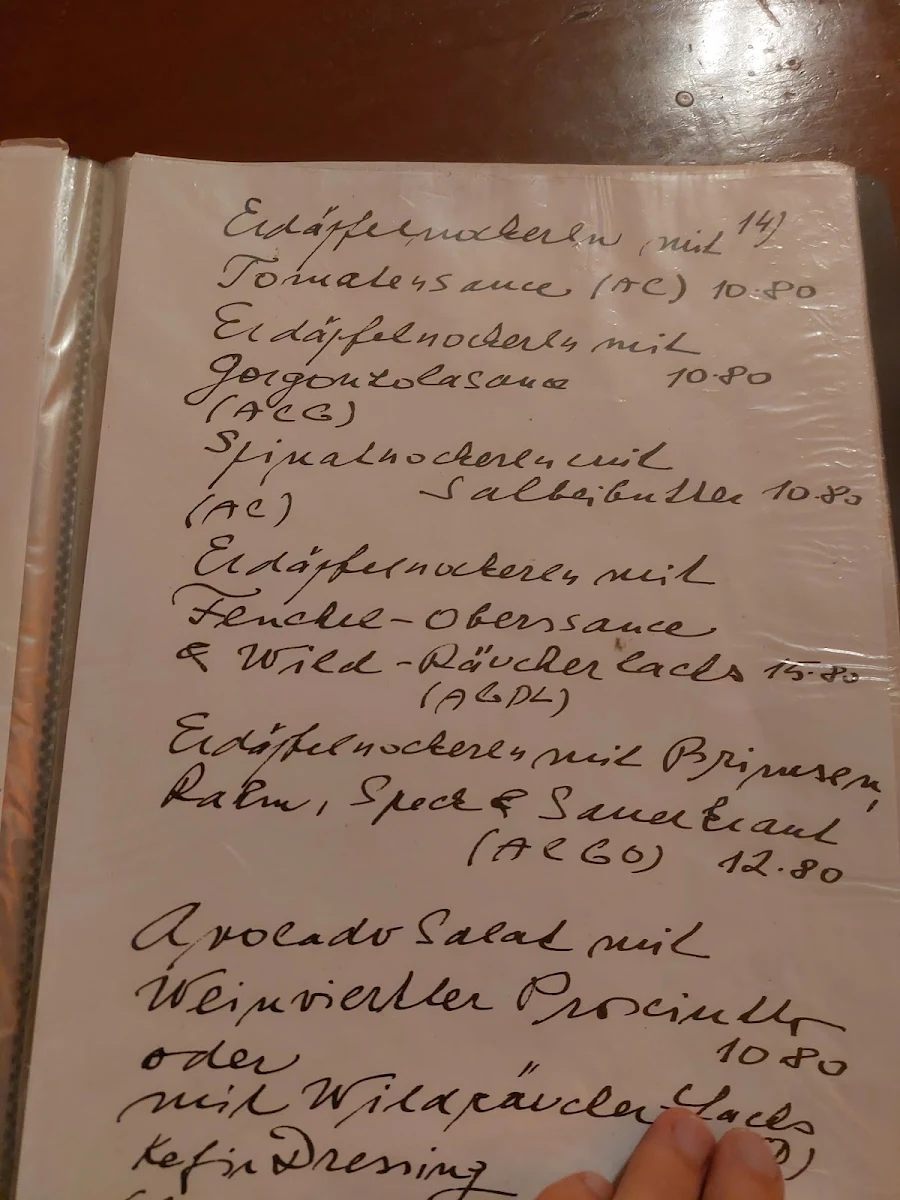 Erdäpfelnockerln mit 14)
Tomatensauce (AC) 10.80
Erdäpfelnockerln mit
Gorgonzolasauce 10.80
(ACG)
Spinatnockerln mit
Salbeibutter 10.80
(AC)
Erdäpfelnockerln mit
Fenchel-Oberssauce
& Wild-Räucherlachs 15.80
(AGDL)
Erdäpfelnockerln mit Brimsen,
Rahm, Speck & Sauerkraut
(ACGO) 12.80
Avocado Salat mit
Weinviertler Prosciutto
10 80
oder
mit Wildräucher-Lachs
Kefir Dressing